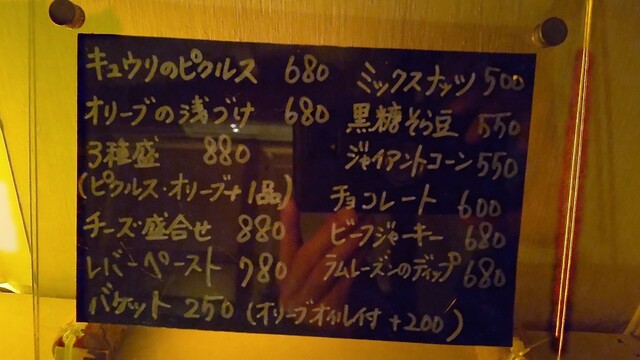 キュウリのピクルス 680
オリーブの浅づけ 680
3種盛 880
(ピクルス・オリーブ+1品)
チーズ盛合せ 880
レバーペースト 780
バケット 250 (オリーブオイル付 +200)
ミックスナッツ 500
黒糖そら豆 550
ジャイアントコーン 550
チョコレート 600
ビーフジャーキー 680
ラムレーズンのディップ 680